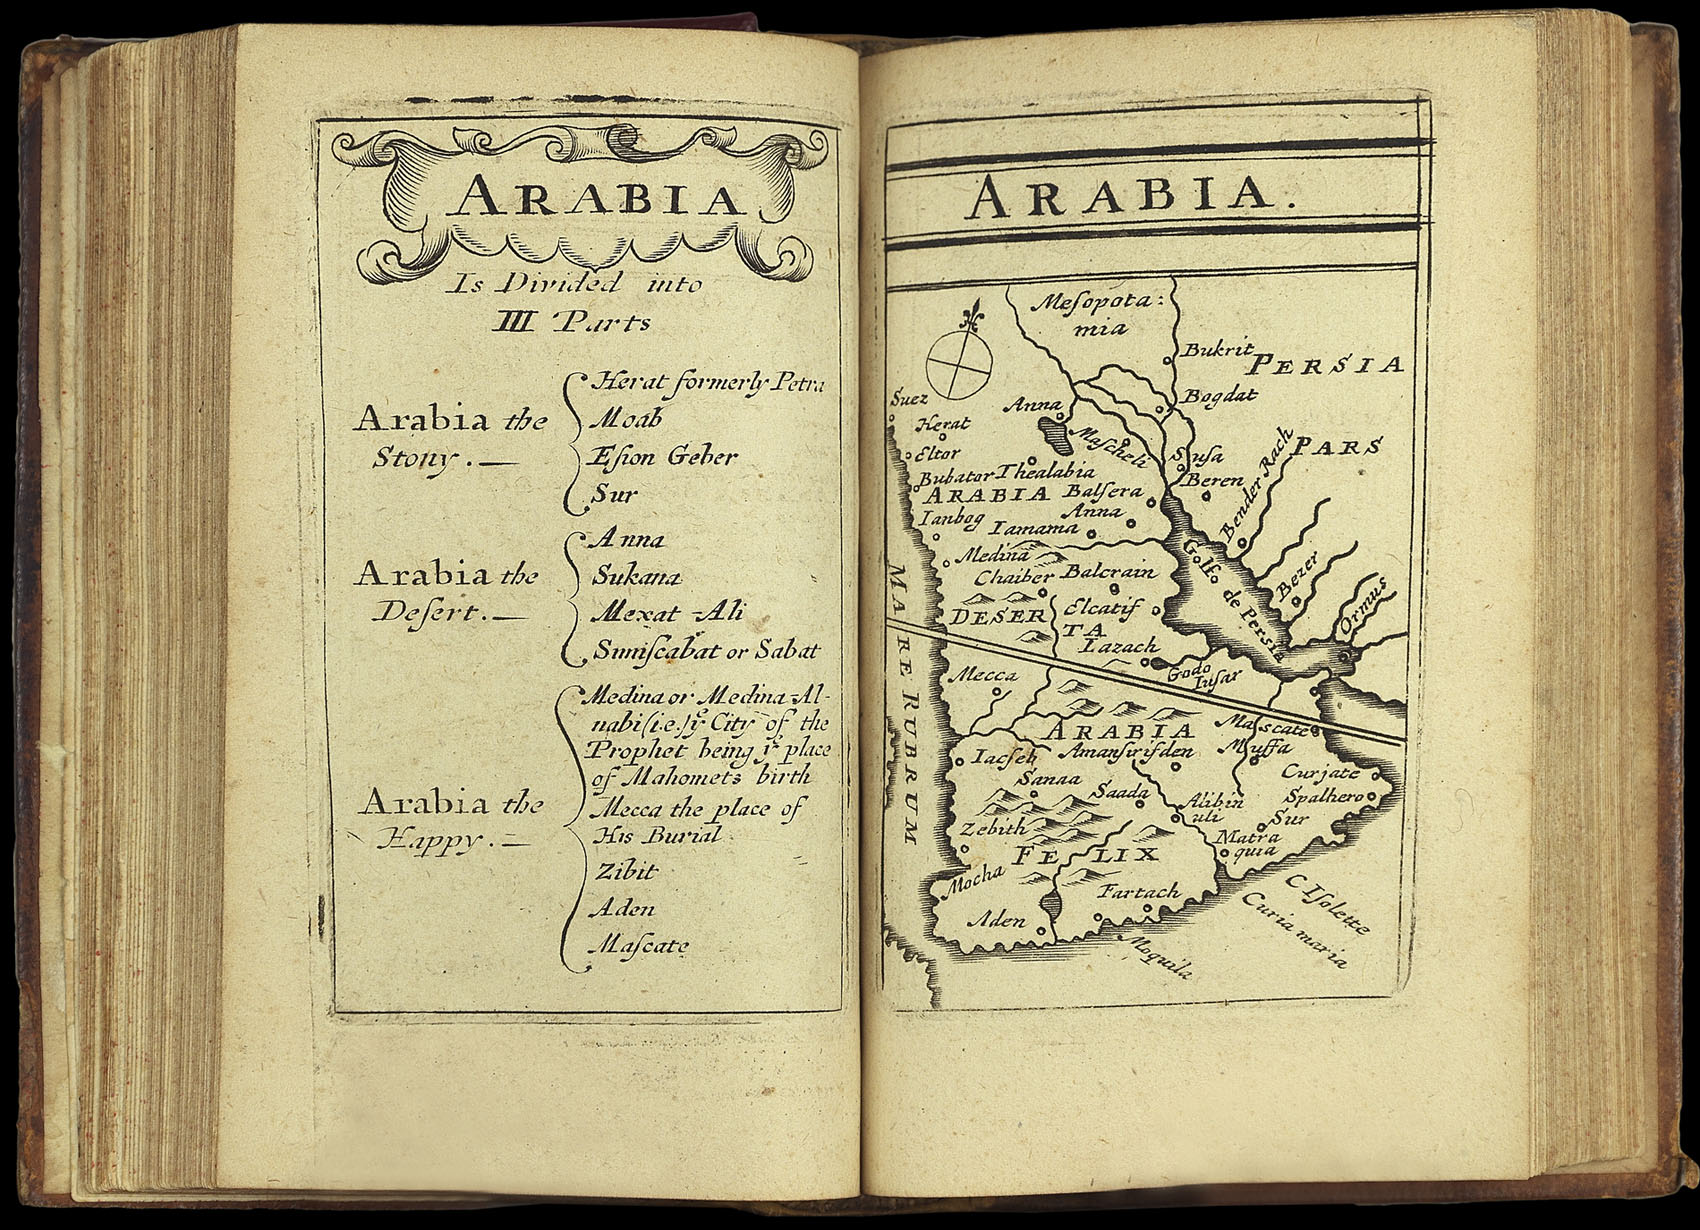 ARABIA
Is Divided into
III Parts
Arabia the
Stony. —
Herat formerly Petra
Moab
Eſion Geber
Sur
Arabia the
Deſert. —
Anna
Sukana
Mexat-Ali
Suniſcabat or Sabat
Arabia the
Happy. —
Medina or Medina-Al-
nabi (i.e.) yͤ City of the
Prophet being yͤ place
of Mahomets birth
Mecca the place of
His Burial
Zibit
Aden
Maſcate
ARABIA.
Meſopota:
mia
Bukrit
PERSIA
Suez
Anna
Bogdat
Herat
Maſcheli
Suſa
PARS
Eltor
Bender Rach
Bubator
Thealabia
Beren
ARABIA
Balſera
Ianbog
Anna
Iamama
Medina
Golfo de Persia
Chaiber
Balcrain
Bezer
DESER
TA
Elcatif
Ormus
Lazach
MARE RUBRUM
Mecca
Godo
Iuſar
ARABIA
Maſcate
Iacſeh
Amanſirifden
Muffa
Sanaa
Curjate
Saada
Spalhero
Alibin
uli
Zebith
Sur
Matra
quia
FELIX
Mocha
Fartach
C Iſolette
Aden
Curia maria
Moquila